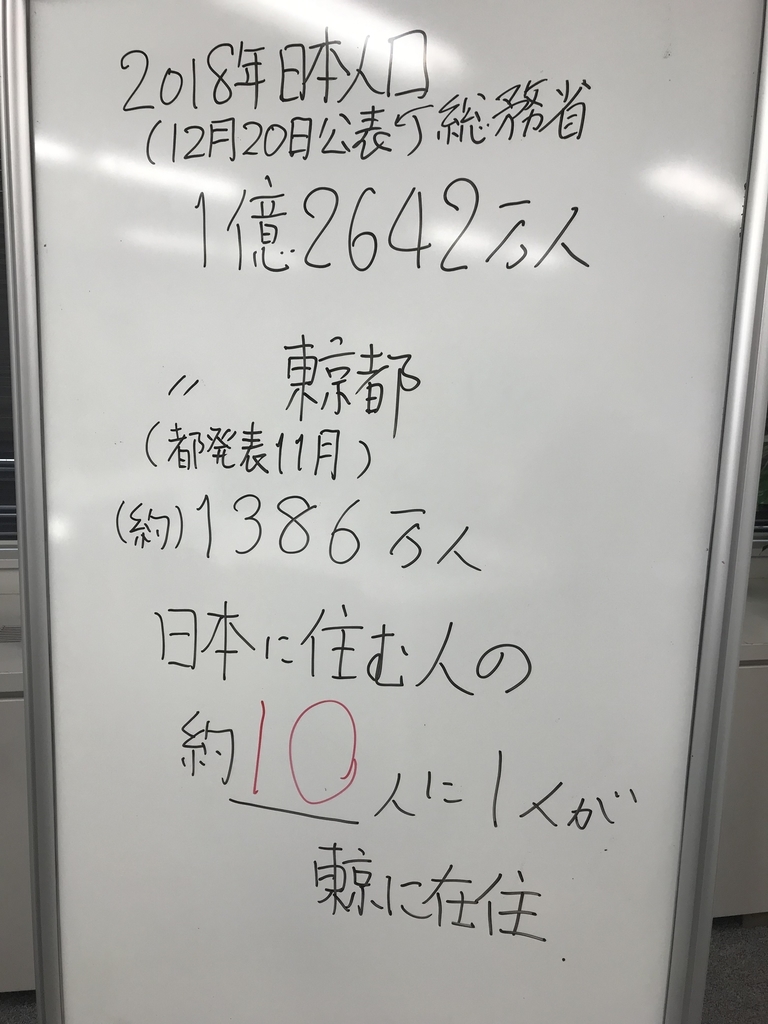 2018年日本人口
(12月20日公表 総務省
1億2642万人
〃 東京都
(都発表11月)
(約)1386万人
日本に住む人の
約10人に1人が
東京に在住